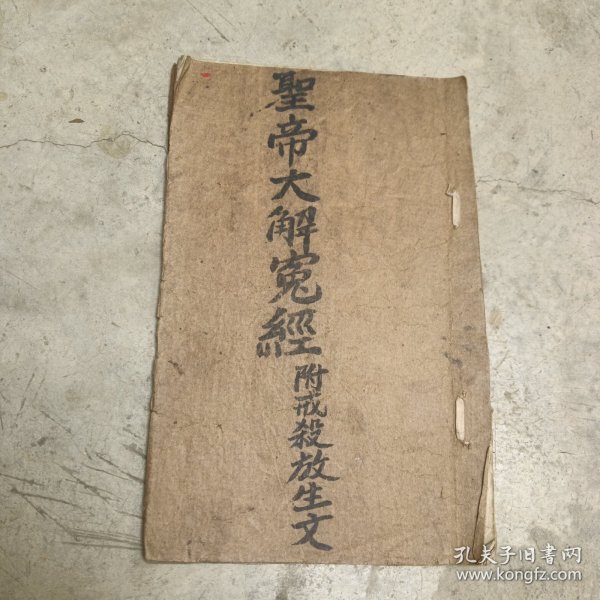 聖帝大解寃經
附戒殺放生文
孔夫子旧書网
www.kongfz.com